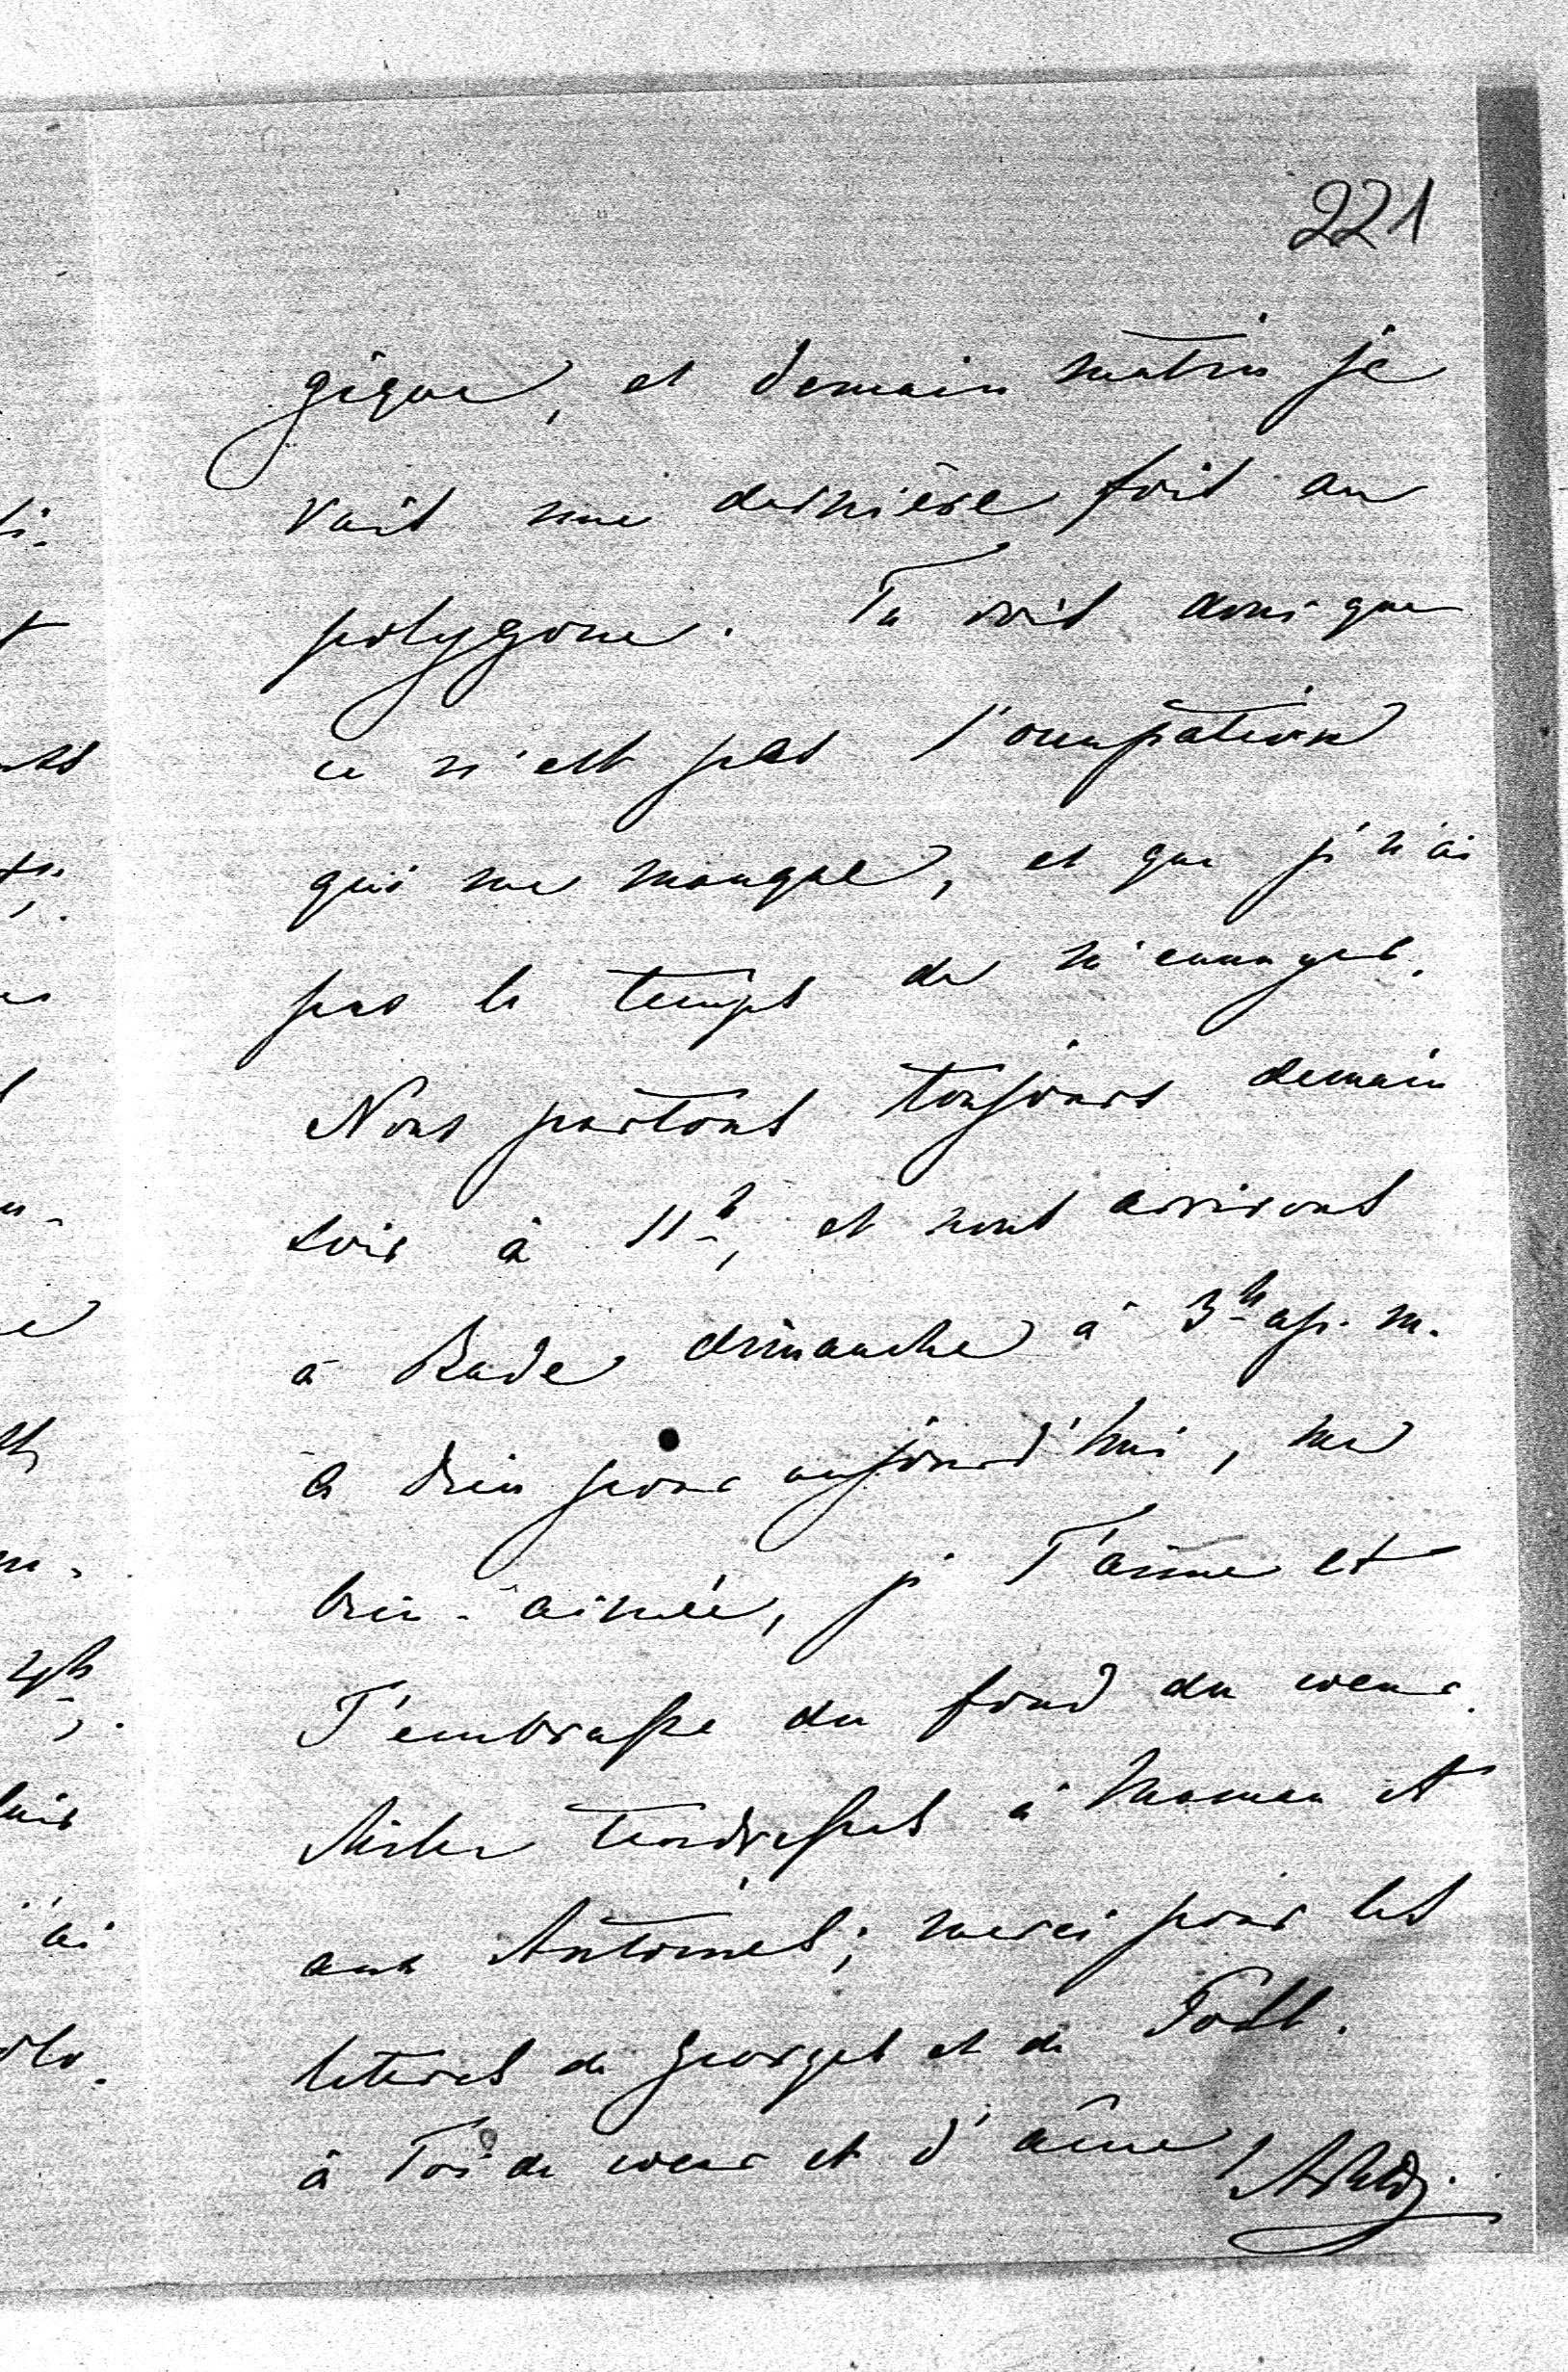 221
gique, et demain matin je
vais une dernière fois au
polygone. Tu vois donc que
ce n'est pas l'occupation
qui me manque, et que je n'ai
pas le temps de m'ennuyer.
Nous partons toujours demain
soir à 11h, et nous arrivons
à Bade dimanche à 3h ap. m.
à Dieu pour aujourd'hui, ma
bien-aimée, je T'aime et
T'embrasse du fond du coeur.
Milles tendresses à Maman et
aux Antoines; merci pour les
lettres de Georges et de
à Toi de coeur et d'âme